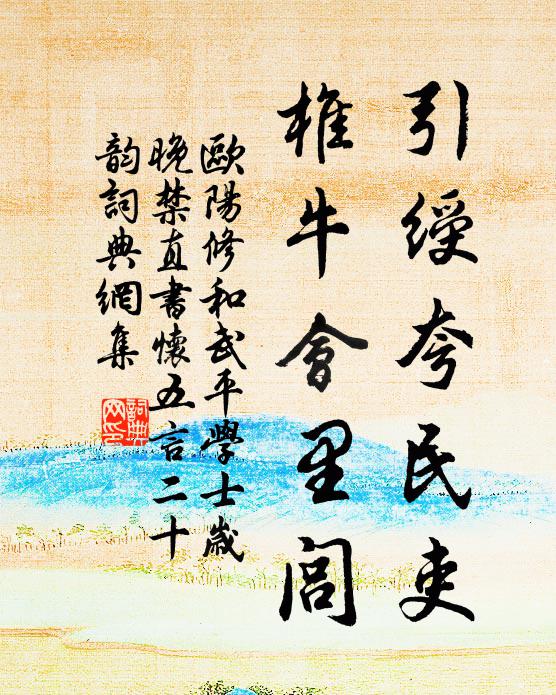 引綬夸民吏
椎牛會里閭
歐陽修和武平學士歲
晚禁直書懷五言二十
韵詞典網集
詞典网印